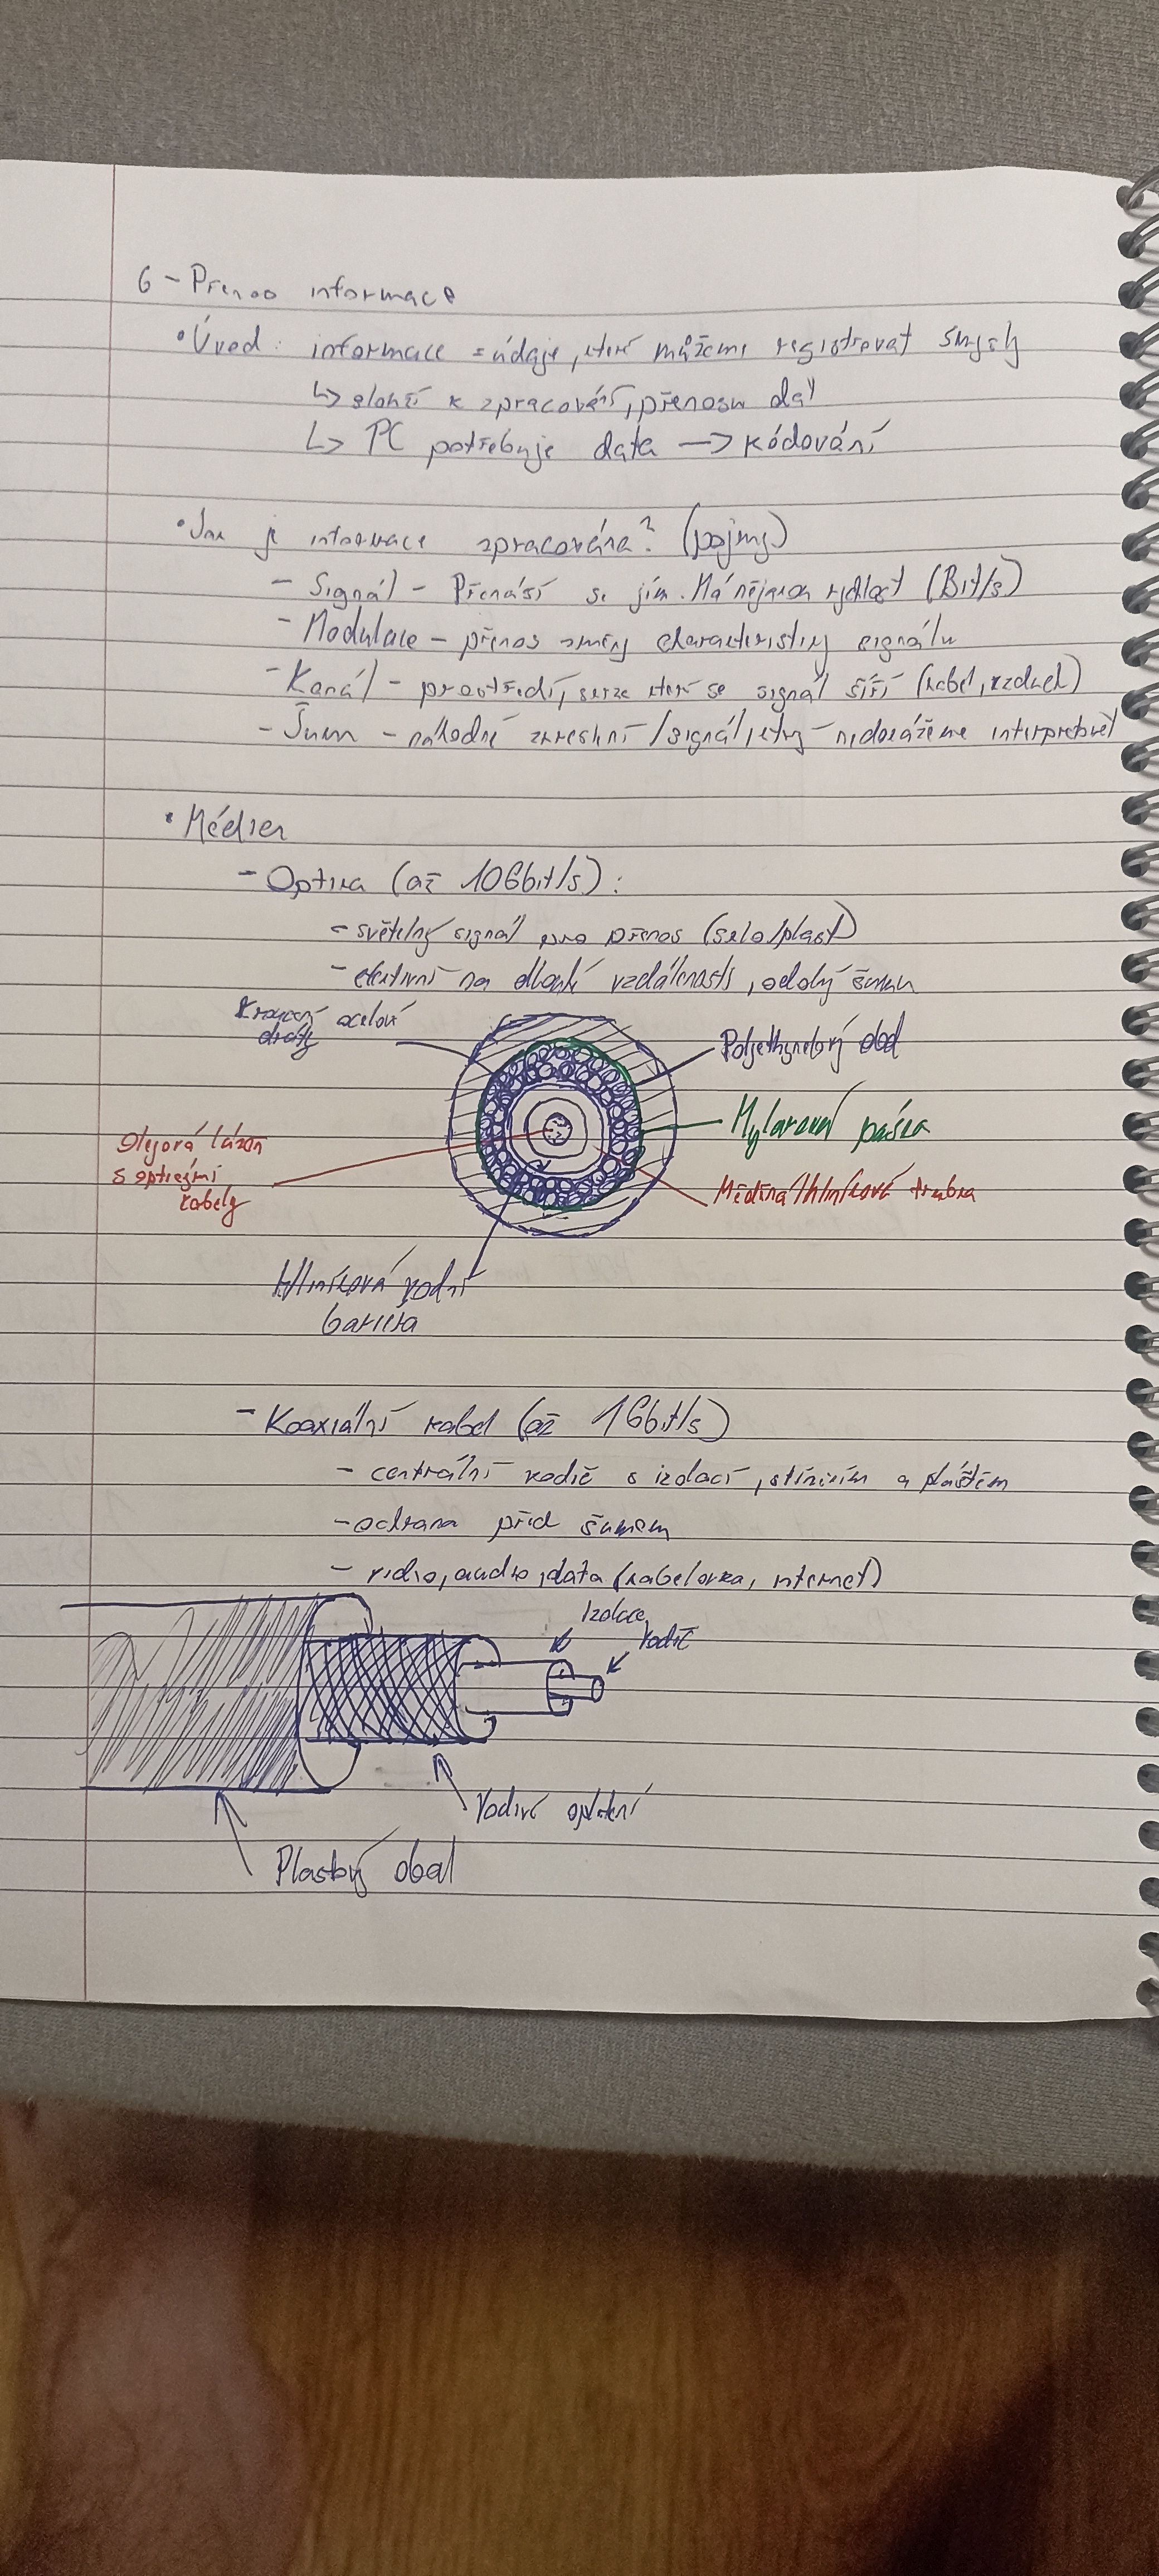 6 - Přenos informace
• Úvod: informace = údaje, které můžeme registrovat smysly
↳ slouží k zpracování, přenosu dat
↳ PC potřebuje data → kódování
• Jak je informace zpracována? (pojmy)
- Signál - Přenáší se jím. Má nějakou rychlost (Bit/s)
- Modulace - přenos změny charakteristiky signálu
- Kanál - prostředí, skrze které se signál šíří (kabel, vzduch)
- Šum - náhodné zkreslení /signál, který nedokážeme interpretovat
• Média
- Optika (až 10Gbit/s):
- světelný signál pro přenos (sklo/plast)
- efektivní na dlouhé vzdálenosti, odolný šumu
Kroucený ocelové
dráty
Polyethynelový obal
Mylarová páska
Olejová lázeň
s optickými
kabely
Měděná/hliníková trubka
Hliníková vodní
bariéra
- Koaxiální kabel (až 1Gbit/s)
- centrální vodič s izolací, stíněním a pláštěm
- ochrana před šumem
- video, audio, data (kabelovka, internet)
Izolace
Vodič
Vodivé opletení
Plastový obal